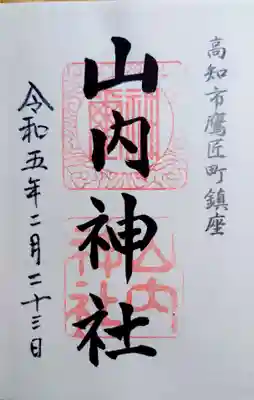 高知市鷹匠町鎮座
山内神社
令和五年二月二十三日
山内神社